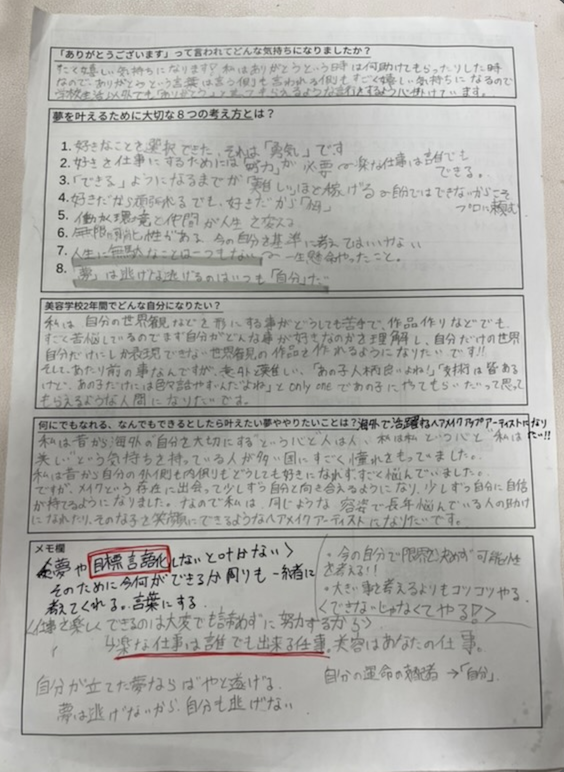 「ありがとうございます」って言われてどんな気持ちになりましたか？
嬉しい気持ちになります！私はありがとうという時は何か助けてもらったりした時
なので、ありがとうという言葉は言う側も言われる側もすごく嬉しい気持ちになるので
学校生活以外でも「ありがとう」と言ってもらえるような言動をするよう心掛けています。
夢を叶えるために大切な８つの考え方とは？
1. 好きなことを選択できた、それは「勇気」です
2. 好きを仕事にするためには「努力」が必要 〜楽な仕事は誰でも
できる。
3. 「できる」ようになるまでが「難しい」ほど稼げる 〜自分ではできないからこそ
プロに頼む
4. 好きだから頑張れるでも、好きだから「悩」
5. 働く環境と仲間が人生を変える
6. 無限の可能性がある、今の自分を基準に考えてはいけない
7. 人生に無駄なことは一つもない 〜一生懸命やったこと。
8. 「夢」は逃げな逃げるのはいつも「自分」だ
美容学校2年間でどんな自分になりたい？
私は自分の世界観などを形にする事がどうしても苦手で、作品作りなどでも
すごく苦悩しているのでまず自分がどんな事が好きなのかを理解し、自分だけの世界
自分だけにしか表現できない世界観の作品を作れるようになりたいです!!
そして、あたり前の事なんですが、案外難しい、「あの子人柄良いよね！」「技術は皆ある
けど、あの子だけには色々話せちゃうんだよね」とonly oneであの子にやってもらいたいって思って
もらえるような人間になりたいです。
何にでもなれる、なんでもできるとしたら叶えたい夢ややりたいことは？海外で活躍なヘアメイクアップアーティストになり
たい!!
私は昔から海外の自分を大切にする"という心と人は人、私は私という心と"私は
美しい"という気持ちを持っている人が多い国にすごく憧れをもっていました。
私は昔から自分の外側も内側もどうしても好きになれずすごく悩んでいました。
ですが、メイクという存在に出会って少しずつ自分と向き合えるようになり、少しずつ自分に自信
が持てるようになりました。なので私は、同じような容姿で長年悩んでいる人の助け
になれたり、その な子を笑顔にできるようなヘアメイクアーティストになりたいです。
メモ欄
〈夢や目標言語化しないと叶わない〉
そのために今何ができるか周りも一緒に
考えてくれる。言葉にする
・今の自分で限界を決めず可能性
を考える!!
・大きい事を考えるよりもコツコツやる
〈できないじゃなくてやる!!〉
〈仕事を楽しくできるのは大変でも諦めずに努力するから〉
↳楽な仕事は誰でも出来る仕事。美容はあなたの仕事。
自分が立てた夢ならばやと遂げる
夢は逃げないから、自分も逃げない
自分の運命の →「自分」